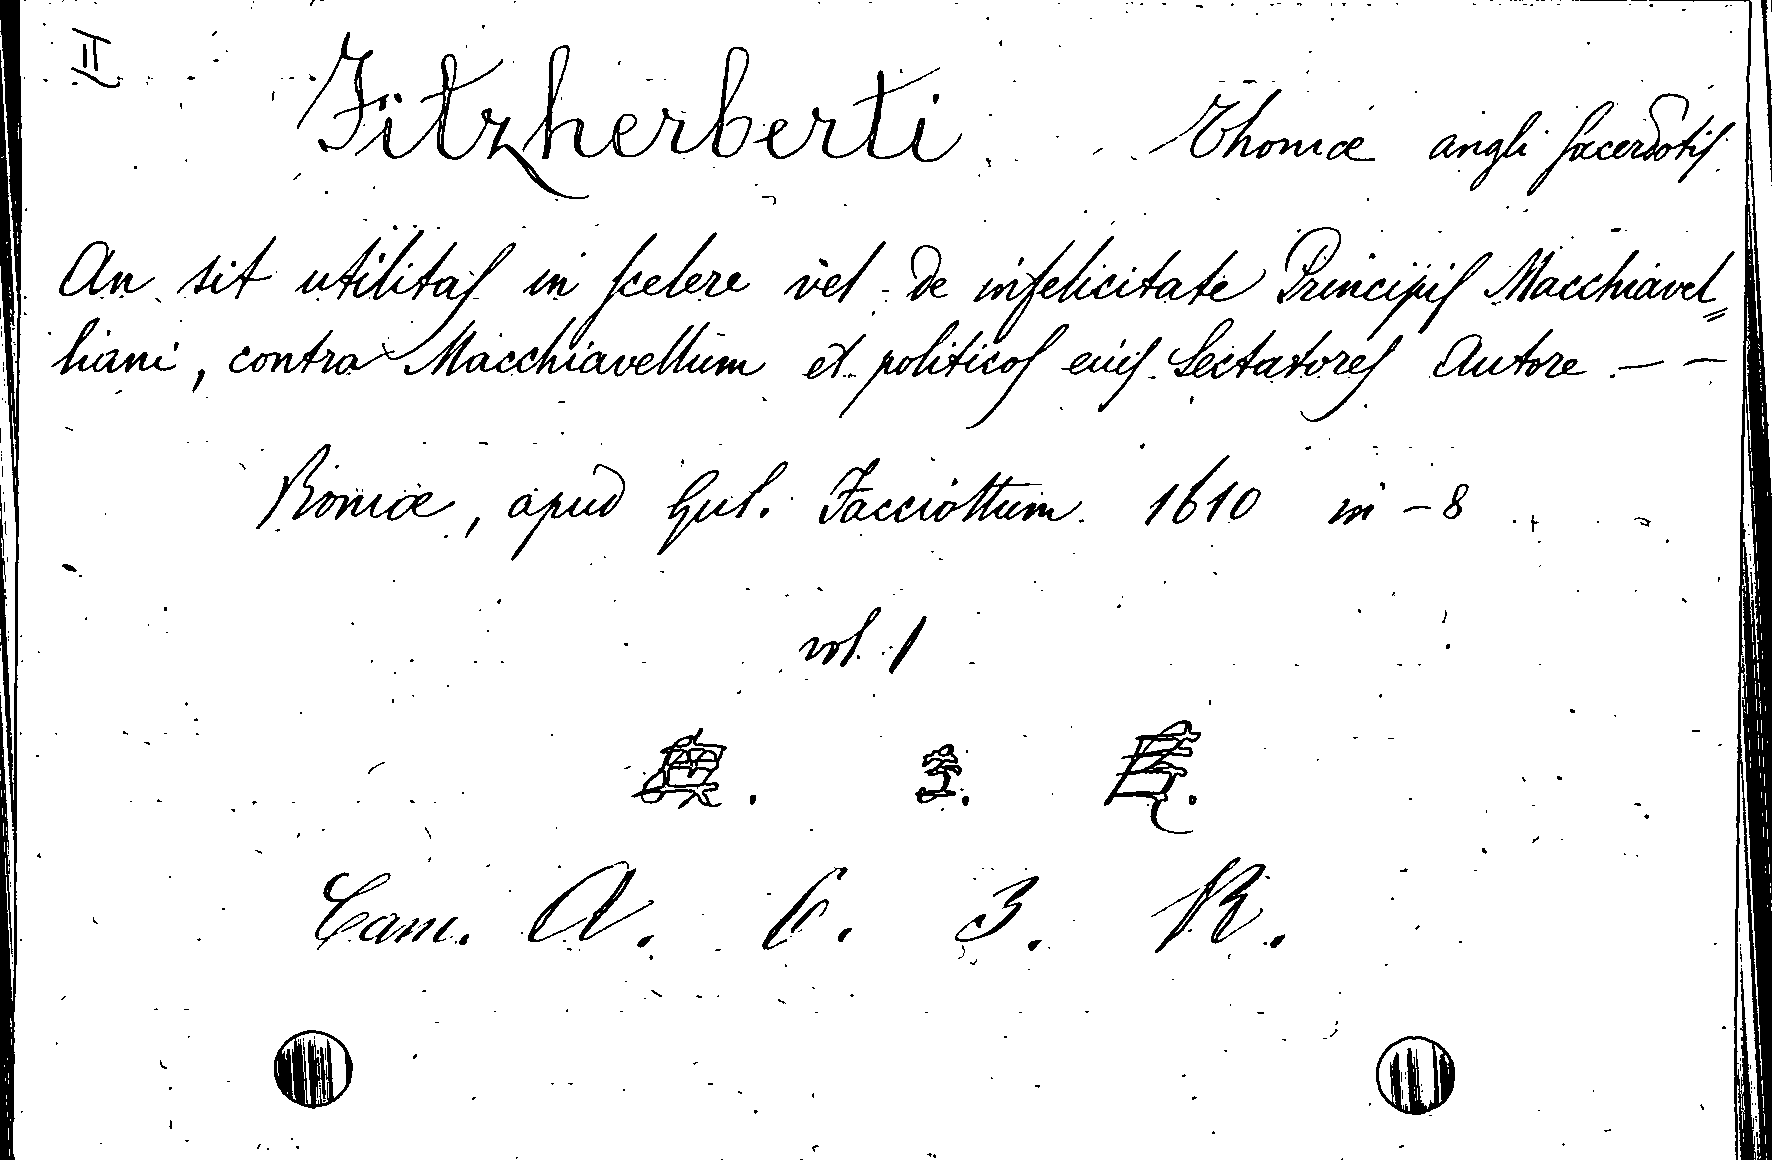 II
Fitzherberti Thomæ angli sacerdotis
An sit utilitas in scelere vel de infelicitate Principis Macchiavel=
liani, contra Macchiavellum et politicos eius Sectatores Autore — —
Romæ, apud Gul. Facciottum 1610 in-8
vol. 1
Cam. A. 6. 3. R.